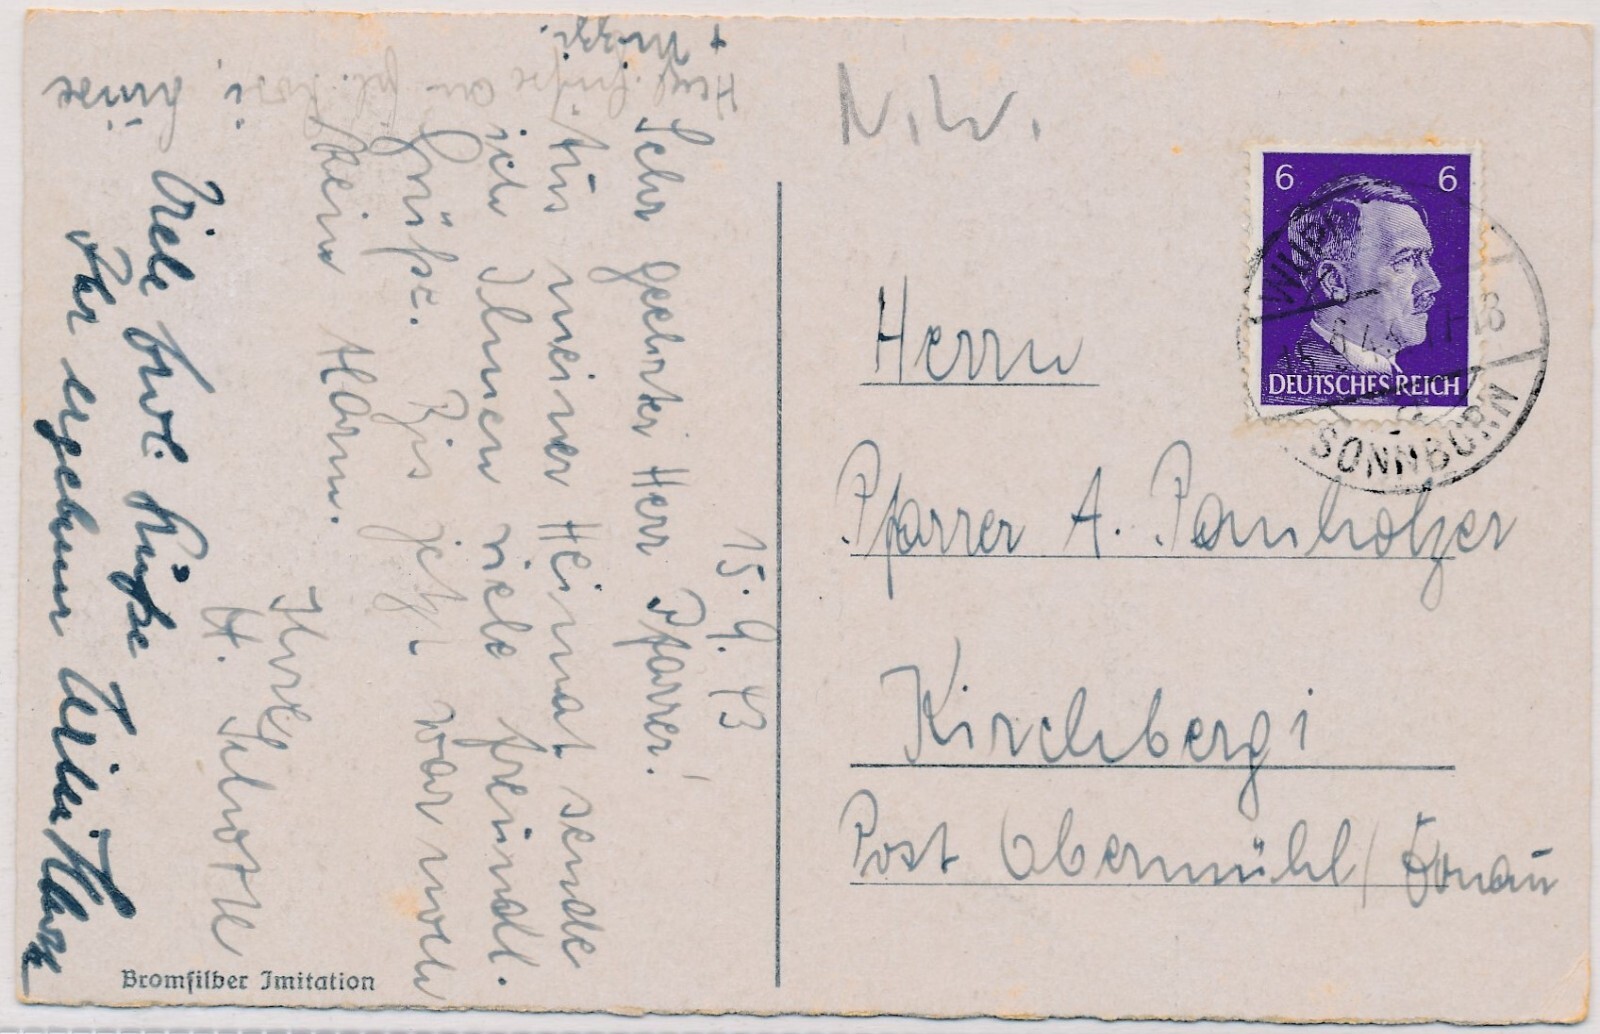 15.9.43
Sehr geehrter Herr Pfarrer!
Aus meiner Heimat sende
ich Ihnen viele freundl.
Grüße. Bis jetzt war noch
kein Alarm.
Ihre
H.
Viele Grüße
Ihr ergebener Willi
N.W.
6 6
DEUTSCHES REICH
SONNBORN
Herrn
Pfarrer A. Pamholzer
Kirchberg i
Post Obermühl / Donau
Bromsilber Imitation